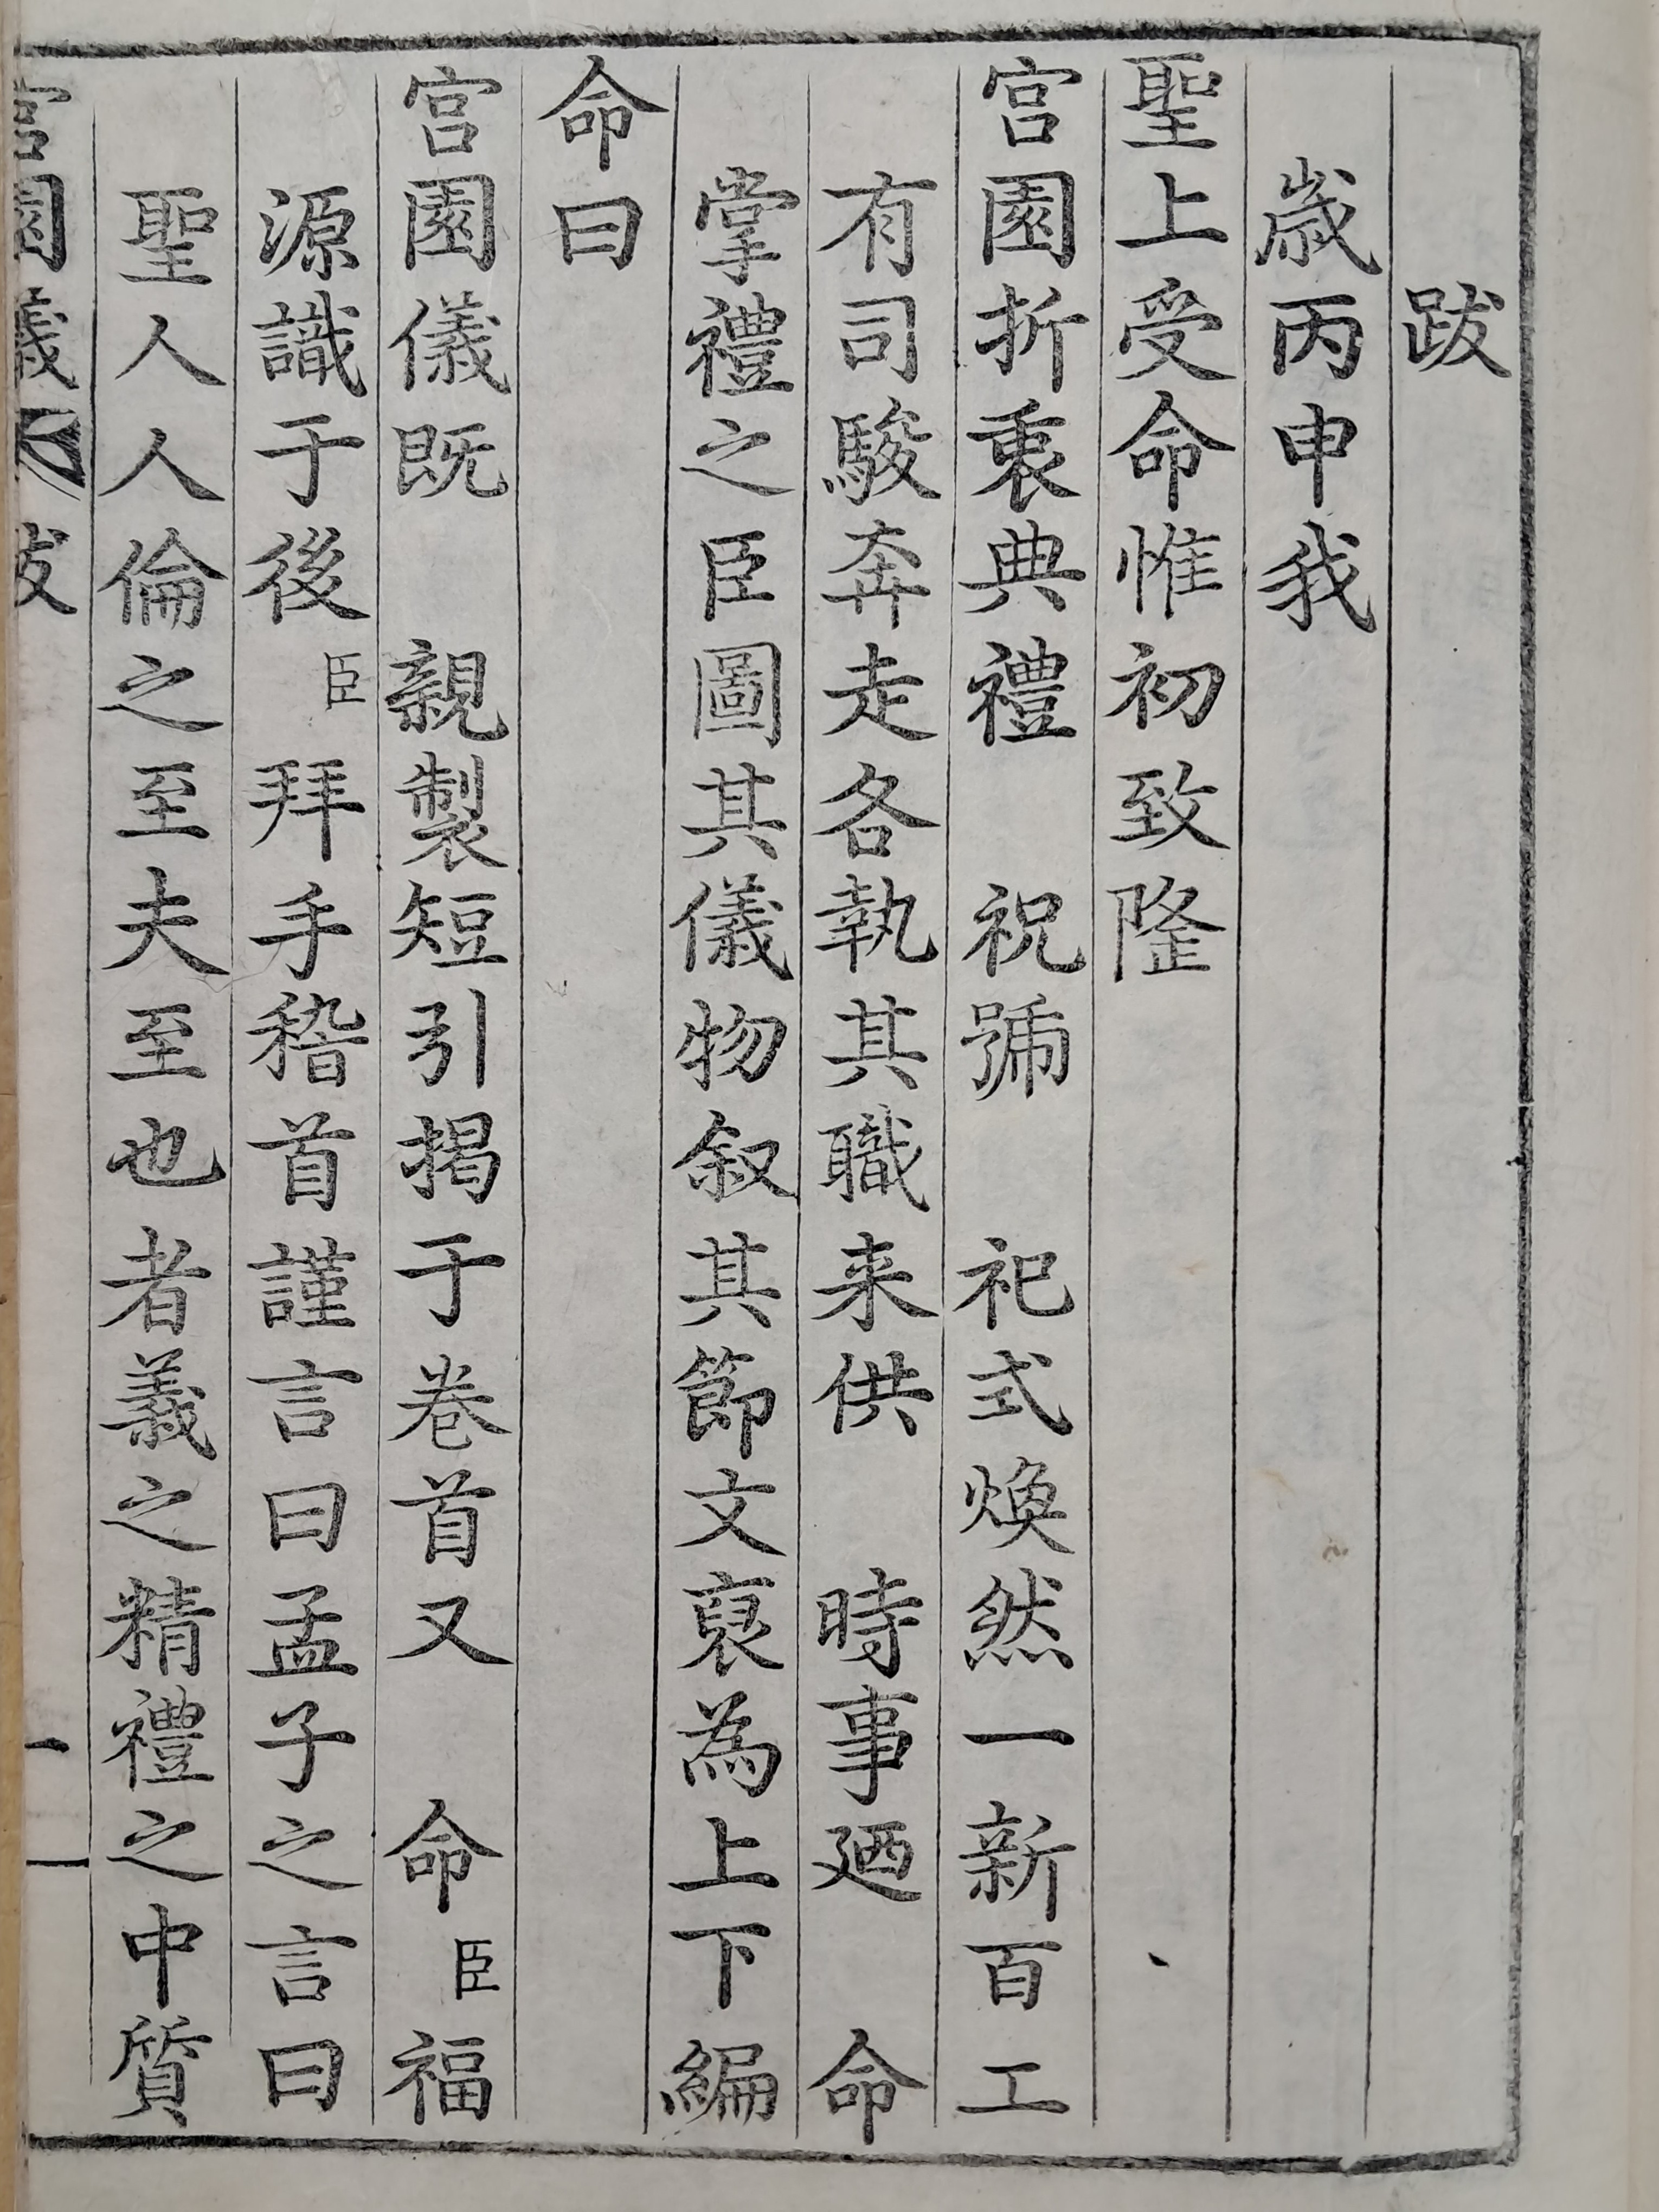 跋
歲丙申我
聖上受命惟初致隆
宮園折衷典禮 祝號 祀式煥然一新百工
有司駿奔走各執其職来供 時事廼 命
掌禮之臣圖其儀物叙其節文裒為上下編
命曰
宮園儀既 親製短引揭于卷首又 命臣福
源識于後臣拜手稽首謹言曰孟子之言曰
聖人人倫之至夫至也者義之精禮之中質
宮園儀 跋 一